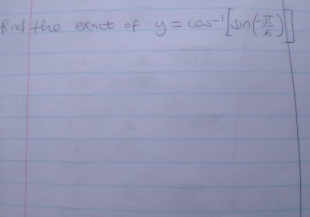 find the exact of y = cos⁻¹[sin(-π/6)]